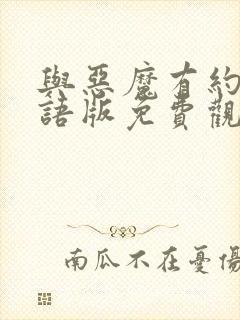 與惡魔有約
語版免費觀
南瓜不在憂傷